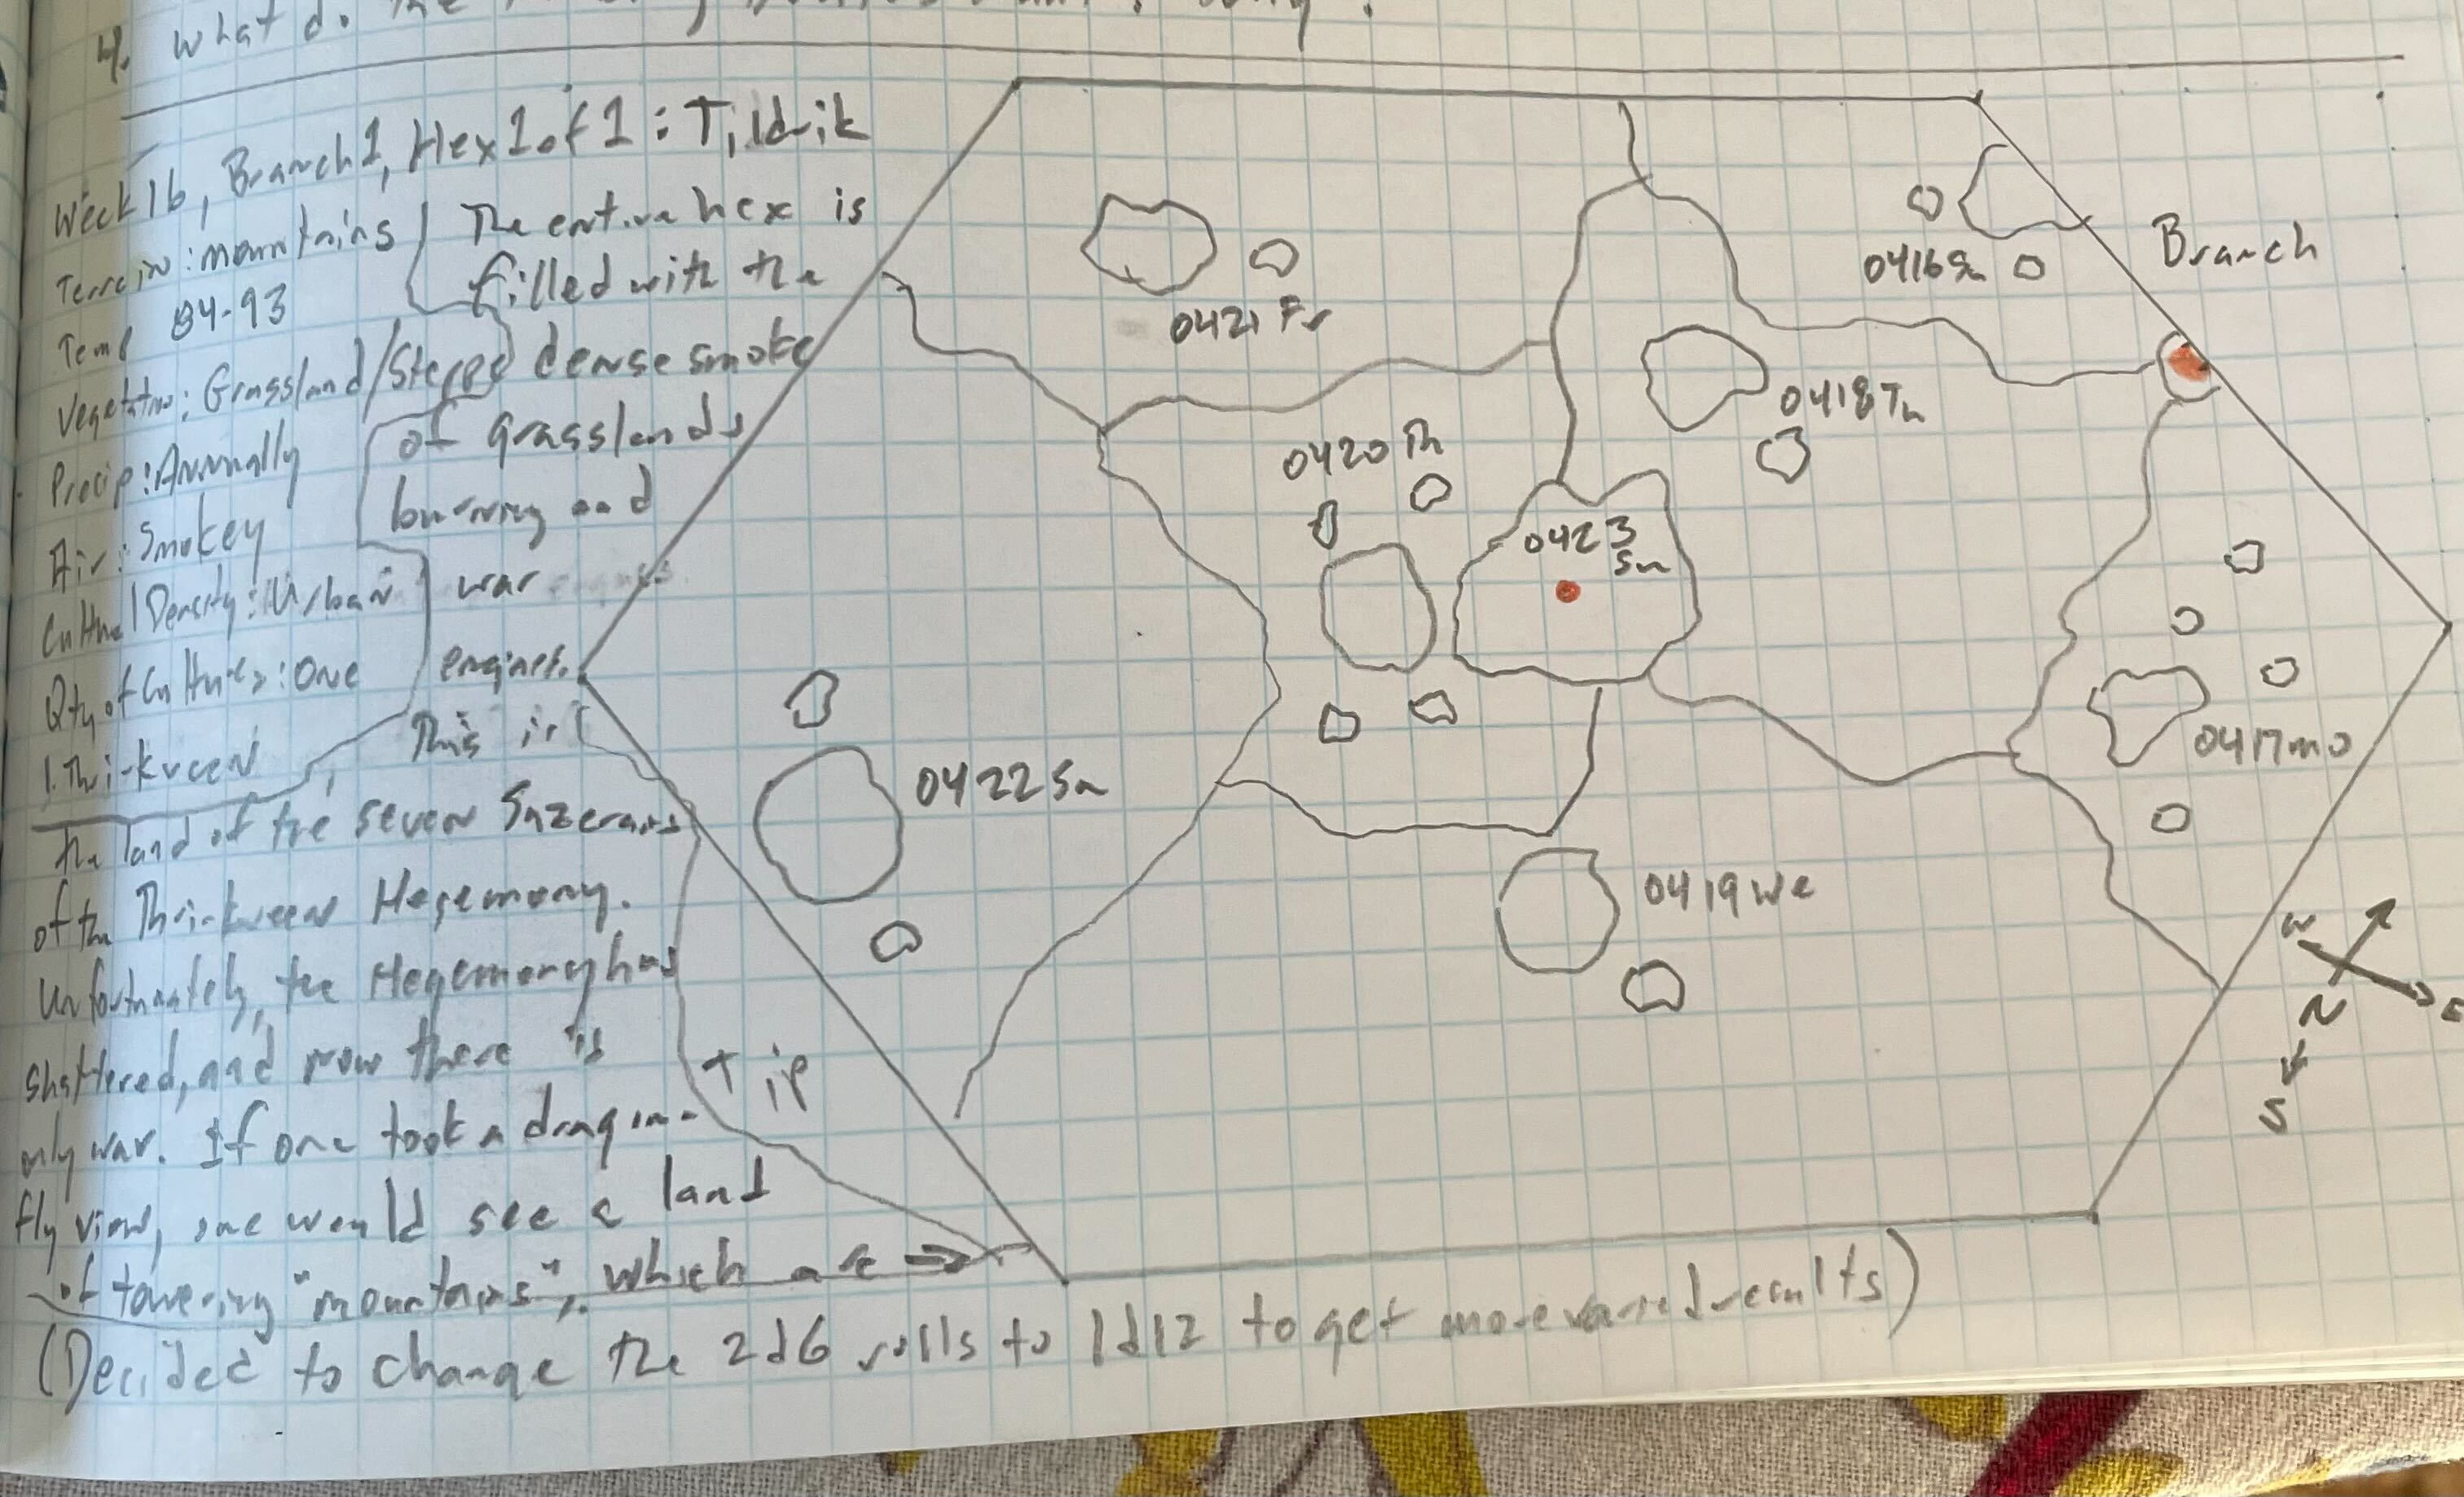 4. What do the
Week 16, Branch 1, Hex 1 of 1: Tildrik
Terrain: mountains
Temp 84-93
Vegetation: Grassland/Steppe
Precip: Annually
Air: Smokey
Cultural Density: Urban
Qty of Cultures: One
1. Thri-kreen
The entire hex is
filled with the
dense smoke
of grasslands
burning and
war
engines.
This is
the land of the seven Suzerains
of the Thri-kreen Hegemony.
Unfortunately, the Hegemony has
shattered, and now there is
only war. If one took a dragon-
fly view, one would see a land
of towering "mountains", which are →
(Decided to change the 2d6 rolls to 1d12 to get more varied results)
Branch
0416 Su
0421 Fr
0418 Tu
0420 Th
0423
Su
0417 mo
0422 Sa
0419 we
T ip
W
E
N
S